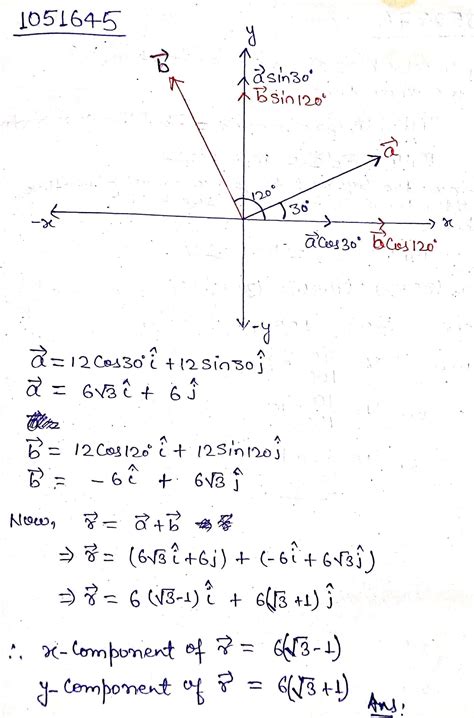 1051645
y
b⃗
a⃗ sin30°
b⃗ sin120°
a⃗
120°
30°
-x
x
a⃗ cos30° b⃗ cos120°
-y
a⃗ = 12 Cos30° î + 12 Sin30 ĵ
a⃗ = 6√3 î + 6 ĵ
b⃗ = 12 Cos120° î + 12 Sin120 ĵ
b⃗ = -6 î + 6√3 ĵ
Now, r⃗ = a⃗ + b⃗
⇒ r⃗ = (6√3 î + 6j) + (-6 î + 6√3 ĵ)
⇒ r⃗ = 6 (√3-1) î + 6(√3+1) ĵ
∴ x-Component of r⃗ = 6(√3-1)
y-Component of r⃗ = 6(√3+1) Ans.